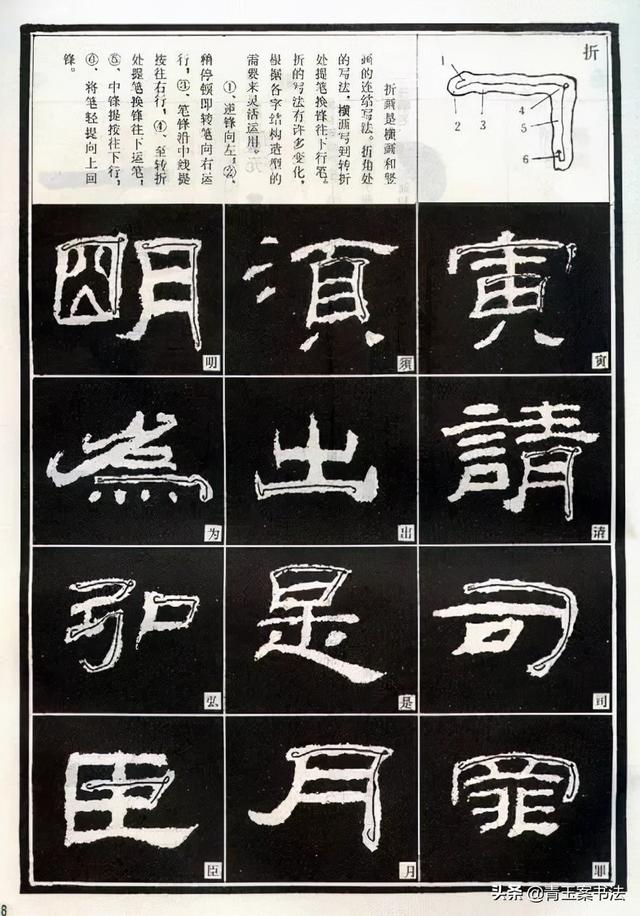 折
1
2
3
4
5
6
折画是横画和竖
画的连结写法。折角处
的写法,横画写到转折
处提笔换锋往下行笔。
折的写法有许多变化,
根据各字结构造型的
需要来灵活运用。
①、逆锋向左,②、
稍停顿即转笔向右运
行,③、笔锋沿中线提
按往右行,④、至转折
处提笔换锋往下运笔,
⑤、中锋提按往下行,
⑥、将笔轻提向上回
锋。
寅
寅
須
須
明
明
請
请
出
出
為
为
司
司
是
是
弘
弘
罪
罪
月
月
臣
臣
8
头条 @青玉案书法